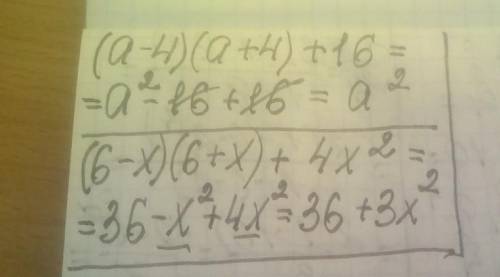 (a-4)(a+4)+16=
=a²-16+16=a²
(6-x)(6+x)+4x²=
=36-x²+4x²=36+3x²